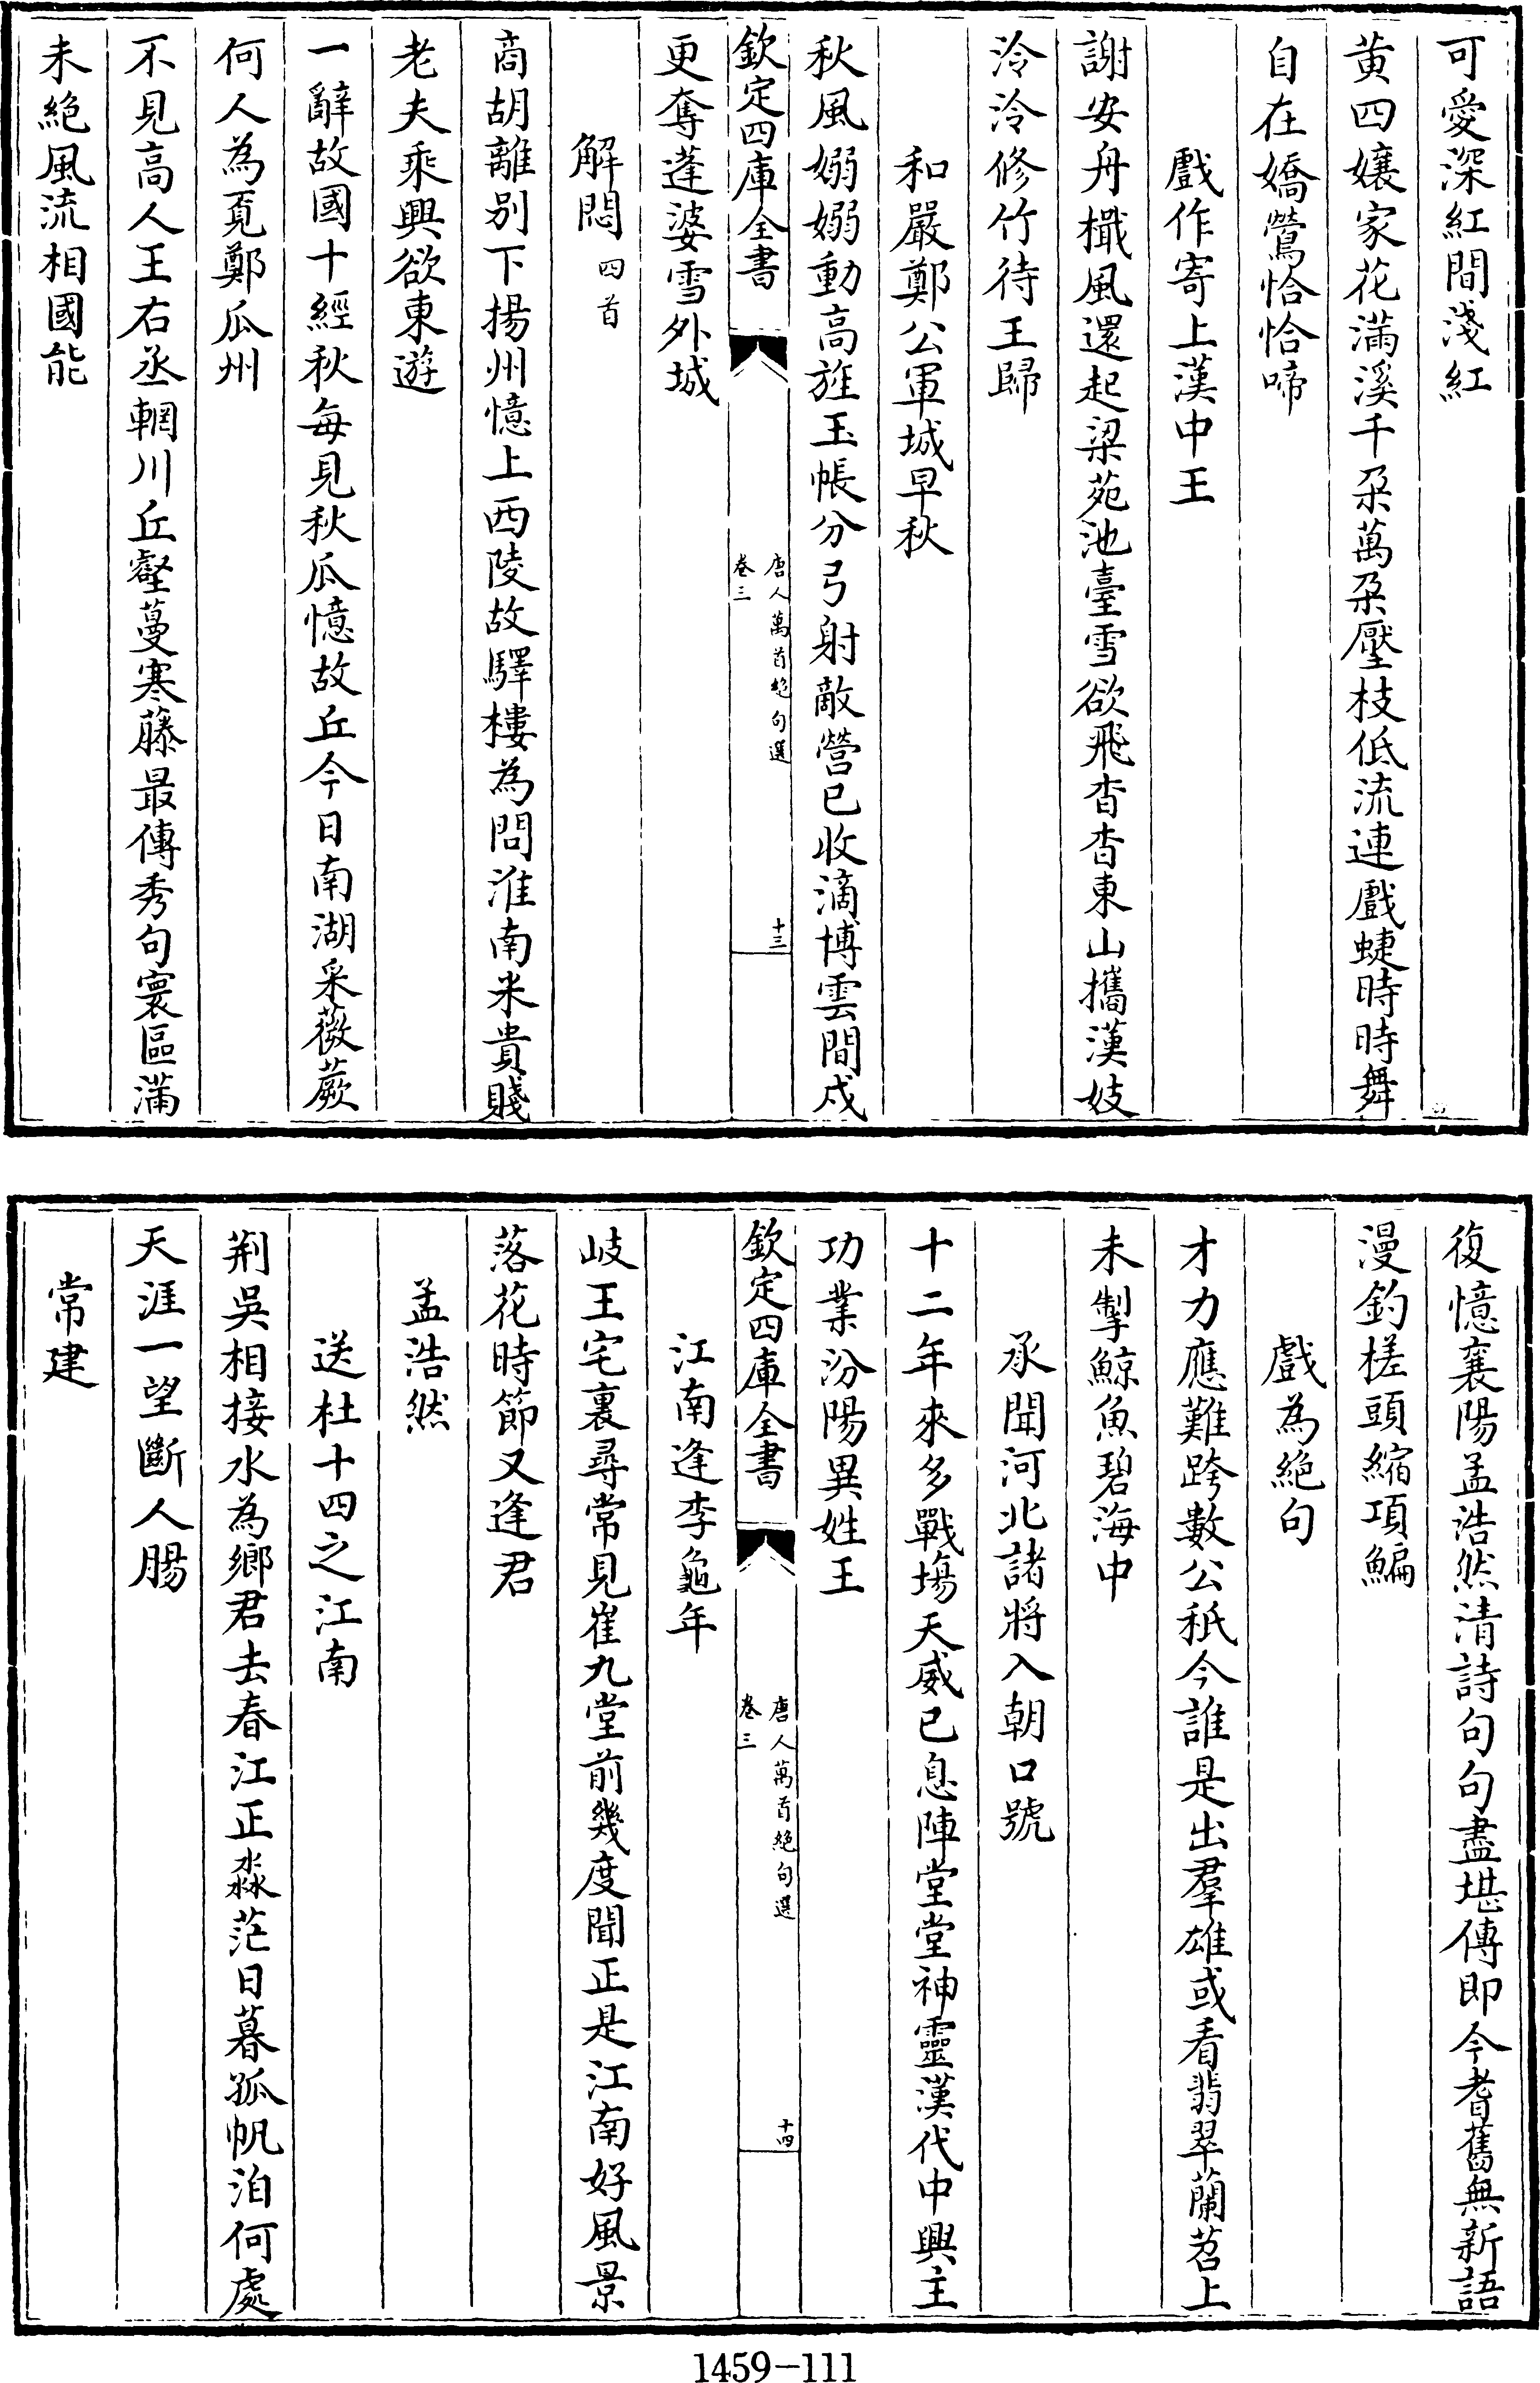 可愛深紅間淺紅
黄四孃家花滿溪千朶萬朶壓枝低流連戲蜨時時舞
自在嬌鶯恰恰啼
戲作寄上漢中王
謝安舟檝風還起梁苑池臺雪欲飛杳杳東山攜漢妓
泠泠修竹待王歸
和嚴鄭公軍城早秋
秋風嫋嫋動高旌玉帳分弓射敵營已收滴博雲間戍
欽定四庫全書
唐人萬首絶句選
卷三
十三
更奪蓬婆雪外城
解悶四首
商胡離別下揚州憶上西陵故驛樓為問淮南米貴賤
老夫乘興欲東遊
一辭故國十經秋每見秋瓜憶故丘今日南湖采薇蕨
何人為覔鄭瓜州
不見高人王右丞輞川丘壑蔓寒藤最傳秀句寰區滿
未絶風流相國能
復憶襄陽孟浩然清詩句句盡堪傳即今耆舊無新語
漫釣槎頭縮項鯿
戲為絶句
才力應難跨數公秖今誰是出羣雄或看翡翠蘭苕上
未掣鯨魚碧海中
承聞河北諸將入朝口號
十二年來多戰場天威已息陣堂堂神靈漢代中興主
功業汾陽異姓王
欽定四庫全書
唐人萬首絶句選
卷三
十四
江南逢李龜年
岐王宅裏尋常見崔九堂前幾度聞正是江南好風景
落花時節又逢君
孟浩然
送杜十四之江南
荆吳相接水為鄉君去春江正淼茫日暮孤帆泊何處
天涯一望斷人腸
常建
1459-111